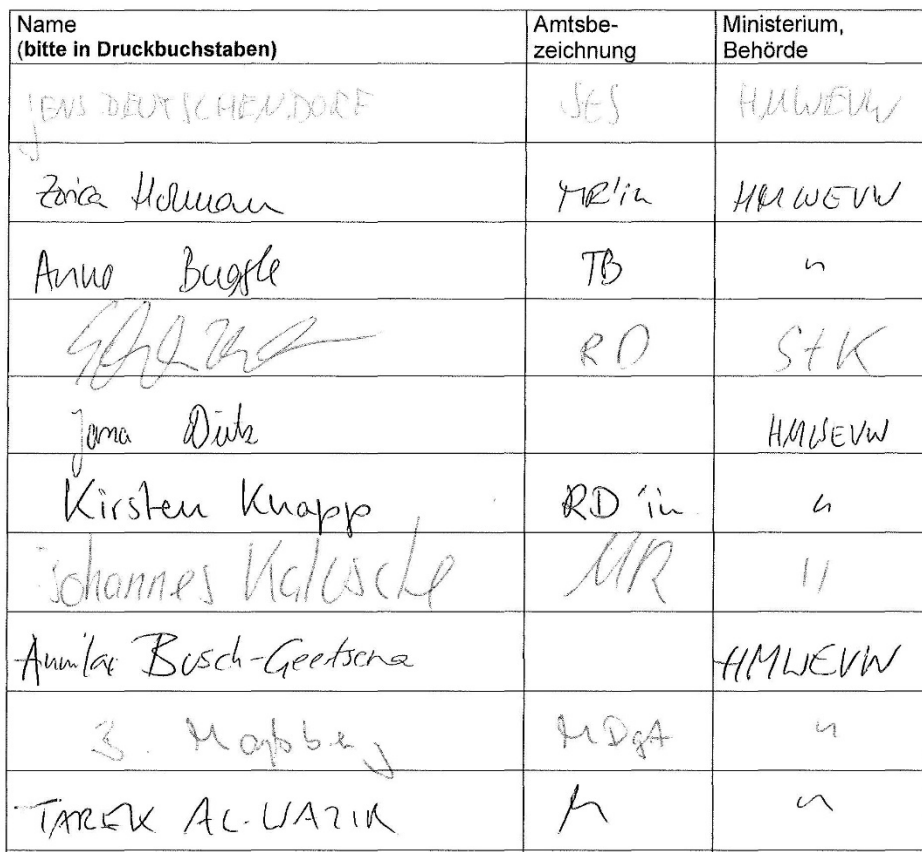 Name (bitte in Druckbuchstaben) Amtsbe-zeichnung Ministerium, Behörde
JENS DEUTSCHENDORF StS HMWEVW
Zorica MR'in HMWEVW
Anna Buggle TB "
RD StK
Jana Dietz HMWEVW
Kirsten Knapp RD'in "
Johannes MR "
Busch-Geertsema HMWEVW
B. MDgt "
TAREK AL-WAZIR M "